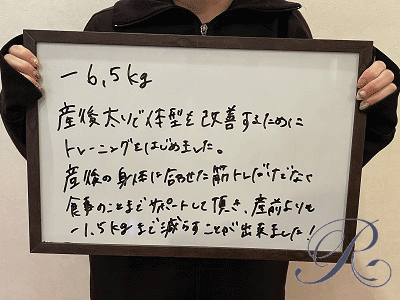 -6,5kg
産後太りで体型を改善するために
トレーニングをはじめました。
産後の身体に合わせた筋トレだけでなく
食事のことまでサポートして頂き、産前よりも
-1.5kgまで減らすことが出来ました!
R